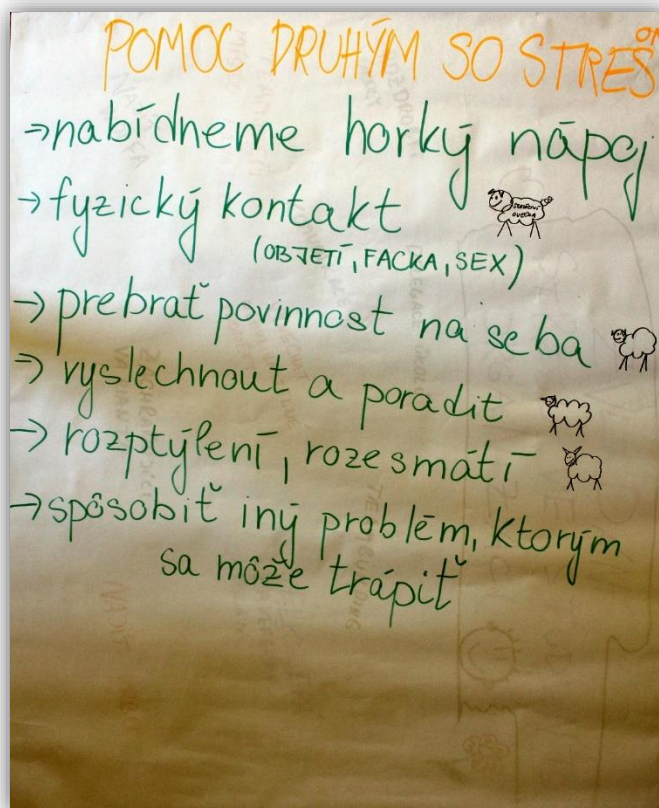 POMOC DRUHÝM SO STRESOM
→ nabídneme horký nápoj
→ fyzický kontakt
(OBJETÍ, FACKA, SEX)
→ prebrať povinnost na seba
→ vyslechnout a poradit
→ rozptýlení, rozesmátí
→ spôsobiť iný problém, ktorým
sa môže trápiť